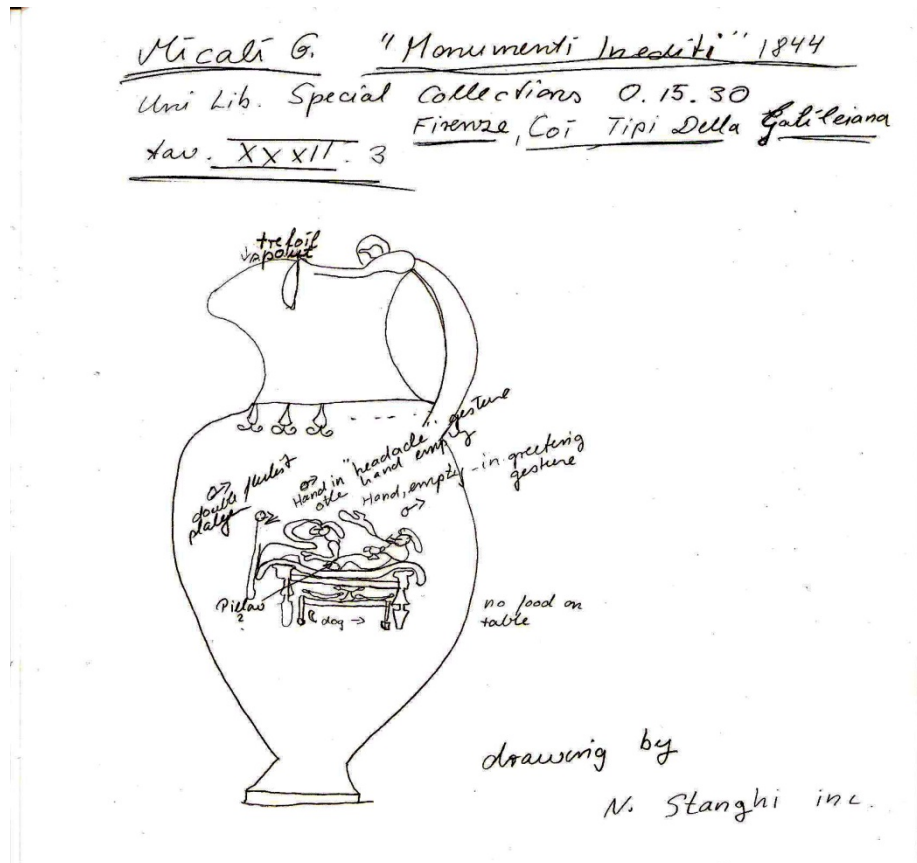 Micali G. "Monumenti Inediti" 1844
Uni Lib. Special Collections O.15.30
Firenze, Coi Tipi Della Galileiana
tav. XXXII. 3
trefoil
spout
♂→
double flutist
♂→
Hand in "headache" gesture
other hand empty
Hand, empty - in greeting
gesture
♂→
Pillow
?
dog →
no food on
table
drawing by
N. Stanghi inc.